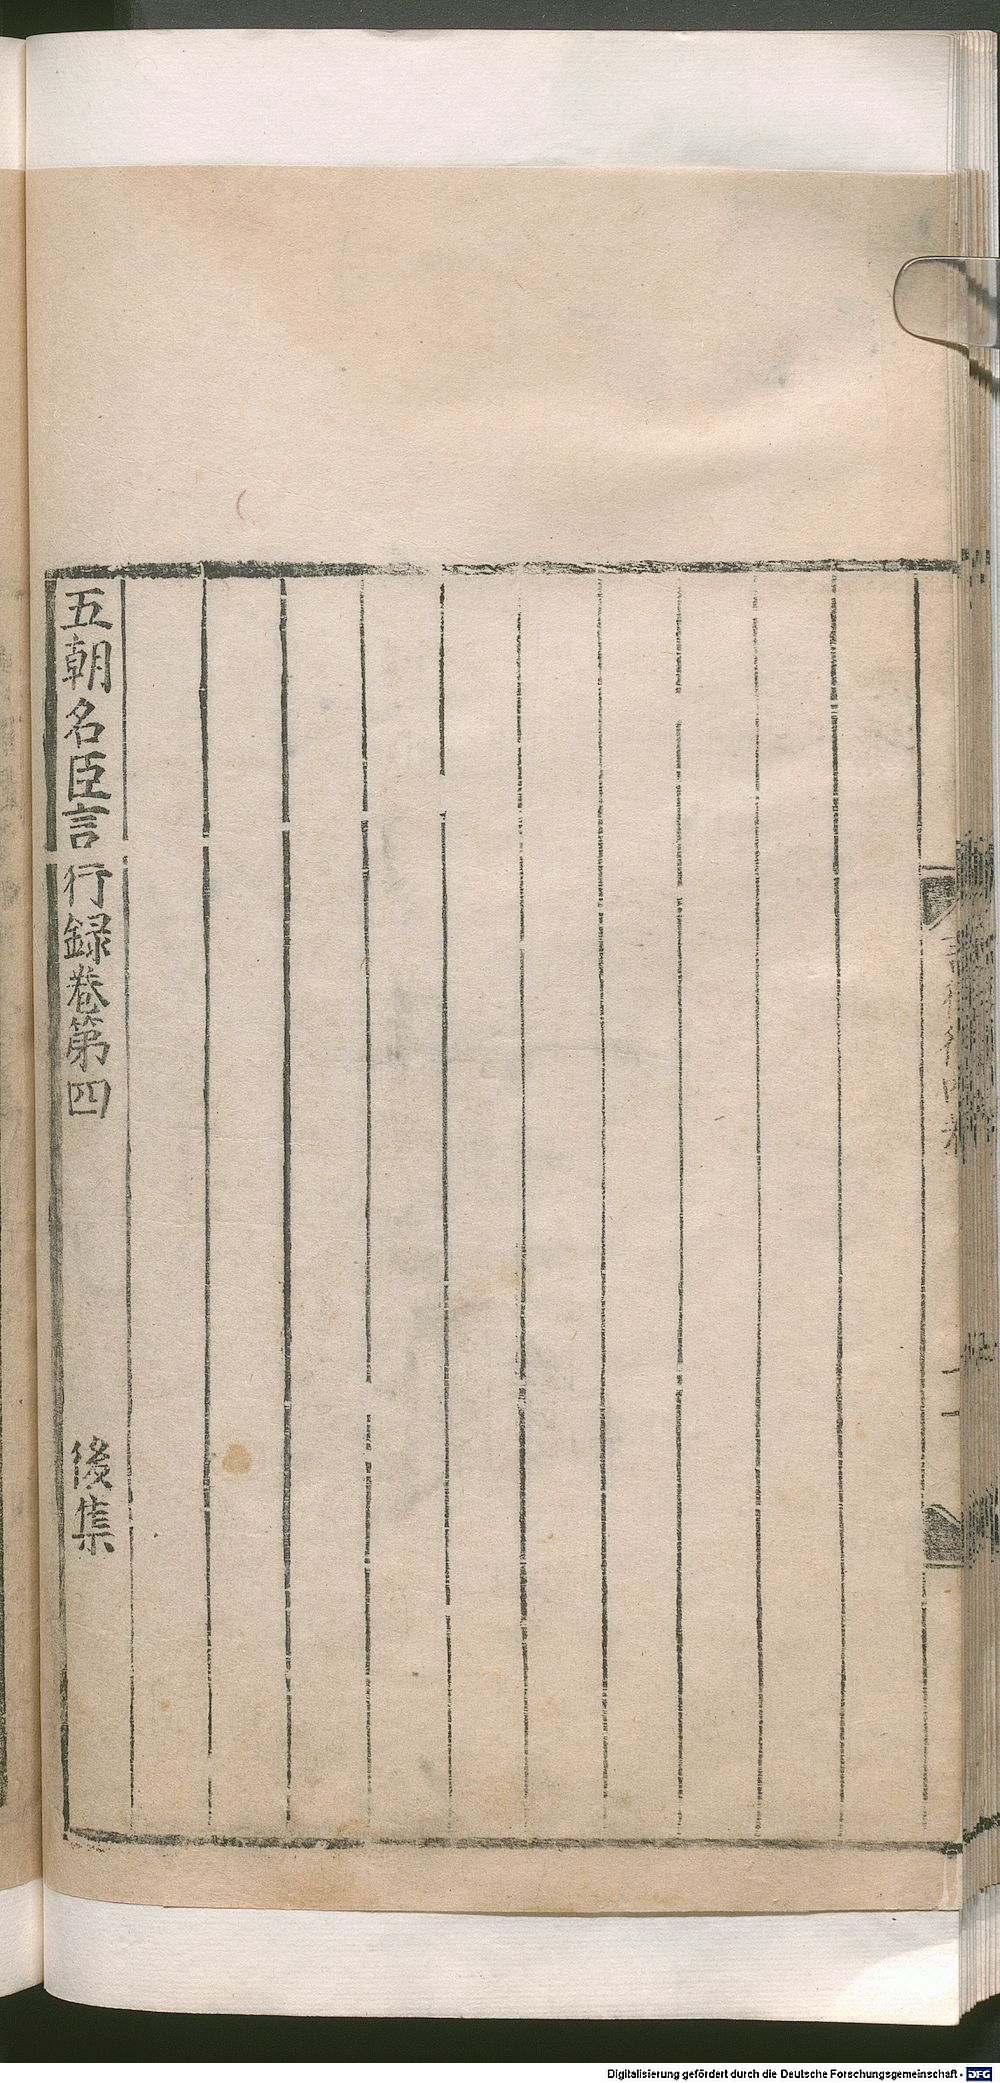 五朝名臣言行録卷第四 後集
Digitalisierung gefördert durch die Deutsche Forschungsgemeinschaft - DFG